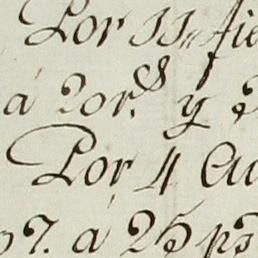 Por 11,, fie
á 20 r.s y 3
Por 4 Cu
7. á 25 ps